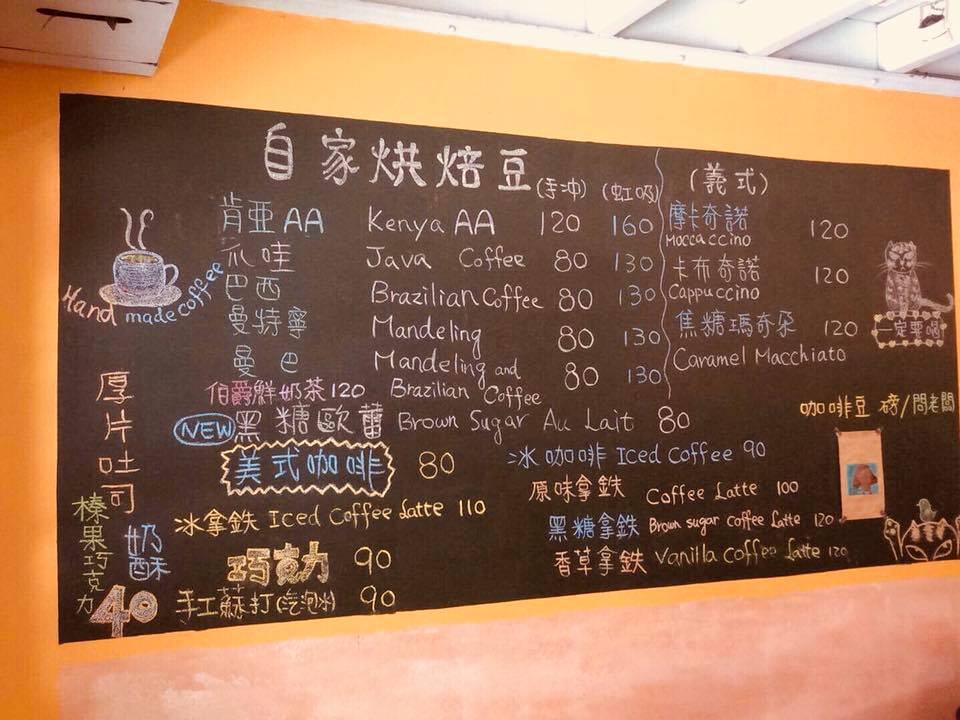 自家烘焙豆 (手冲) (虹吸)
肯亞AA Kenya AA 120 160
爪哇 Java Coffee 80 130
巴西 Brazilian Coffee 80 130
曼特寧 Mandeling 80 130
曼巴 Mandeling and Brazilian Coffee 80 130
伯爵鮮奶茶 120
NEW 黑糖歐蕾 Brown Sugar Au Lait 80
美式咖啡 80
冰拿鉄 Iced Coffee Latte 110
巧克力 90
手工蘇打(氣泡水) 90
Hand made coffee
厚片吐司
榛果巧克力
奶酥
40
(義式)
摩卡奇諾 120
Moccaccino
卡布奇諾 120
Cappuccino
焦糖瑪奇朵 120
Caramel Macchiato
一定要喝
咖啡豆 磅/問老闆
冰咖啡 Iced Coffee 90
原味拿鉄 Coffee Latte 100
黑糖拿鉄 Brown sugar coffee Latte 120
香草拿鉄 Vanilla Coffee Latte 120